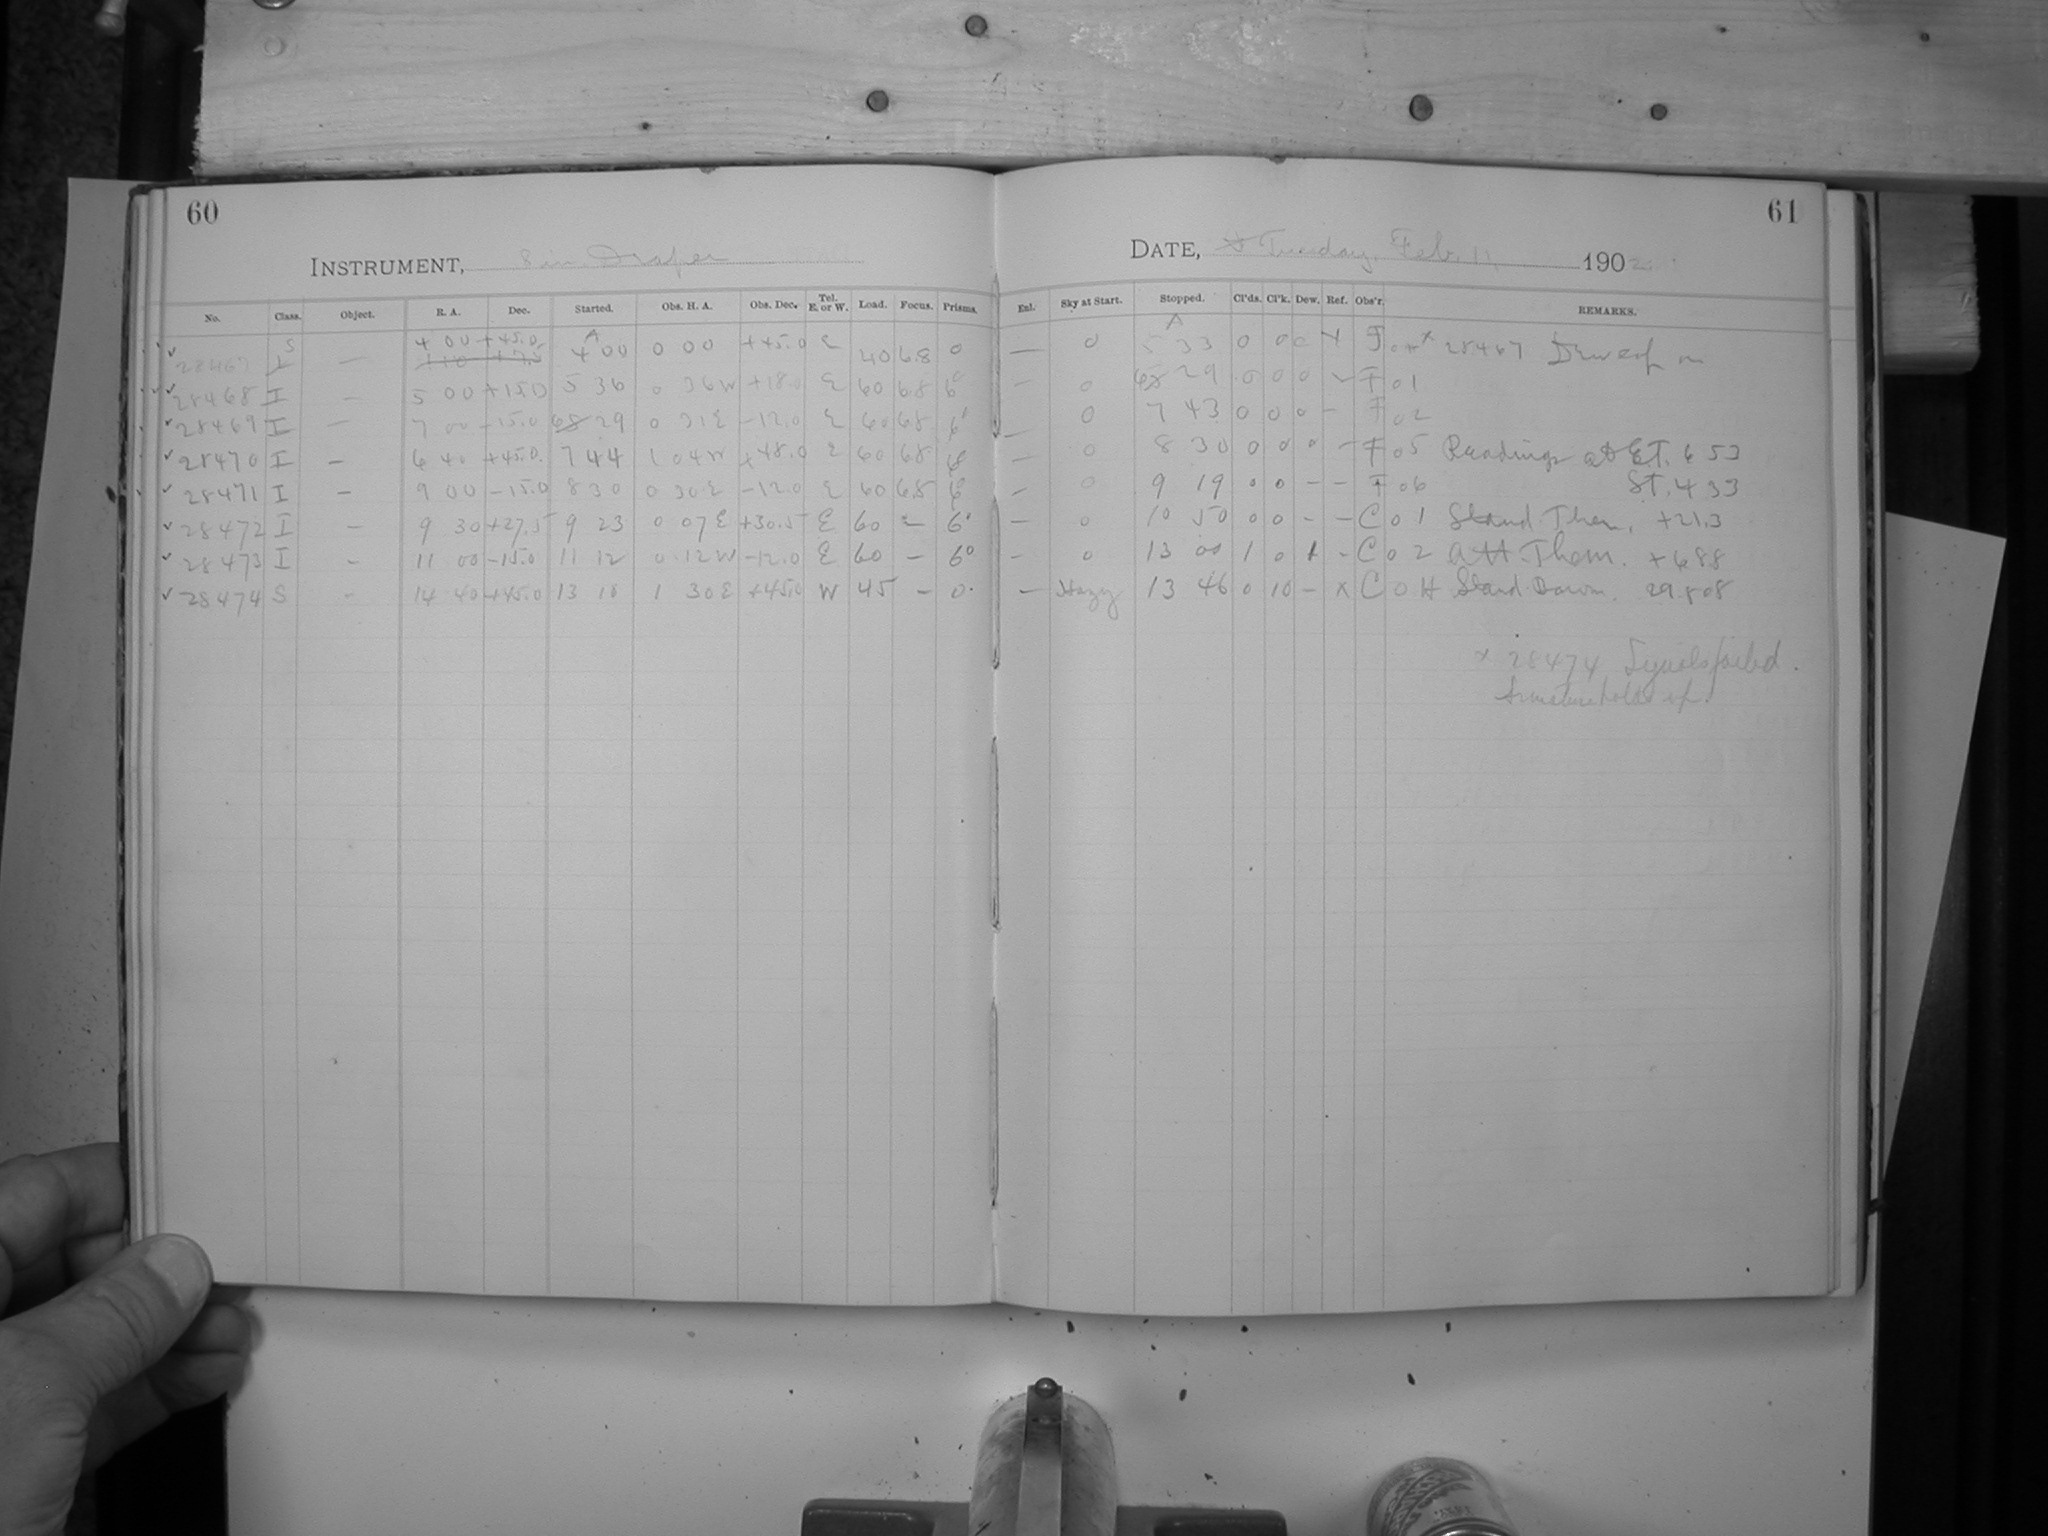 60
INSTRUMENT, 8 in. Draper
No. Class. Object. R. A. Dec. Started. Obs. H. A. Obs. Dec. Tel. E. or W. Load. Focus. Prisms.
S 4 00 +45.0 A
28467 I — 1 10 +75 4 00 0 00 +45.0 E 40 6.8 0
28468 I — 5 00 +15.0 5 36 0 36W +18.0 E 60 6.8 6°
28469 I — 7 00 -15.0 6 29 0 31E -12.0 E 60 6.8 6°
28470 I — 6 40 +45.0 7 44 1 04W +48.0 E 60 6.8 6°
28471 I — 9 00 -15.0 8 30 0 30E -12.0 E 60 6.8 6°
28472 I — 9 30 +27.5 9 23 0 07E +30.5 E 60 — 6°
28473 I — 11 00 -15.0 11 12 0 12W -12.0 E 60 — 6°
28474 S — 14 40 +45.0 13 18 1 30E +45.0 W 45 — 0
61
DATE, Tuesday, Feb. 11, 1902
Enl. Sky at Start. Stopped. Cl'ds. Cl'k. Dew. Ref. Obs'r. REMARKS.
A
— 0 5 33 0 0 0 x F x 28467 Dew cap on
— 0 6 29 0 0 0 - F 01
— 0 7 43 0 0 0 - F 02
— 0 8 30 0 0 0 - F 05 Readings at E.T. 6 53
— 0 9 19 0 0 - - F 06 S.T. 4 33
— 0 10 50 0 0 - - C 01 Stand Ther. +21.3
— 0 13 00 1 0 1 - C 02 Att Therm. +68.8
— Hazy 13 46 0 10 - x C 0H Stand Barom. 29.808
x 28474 Signals failed.